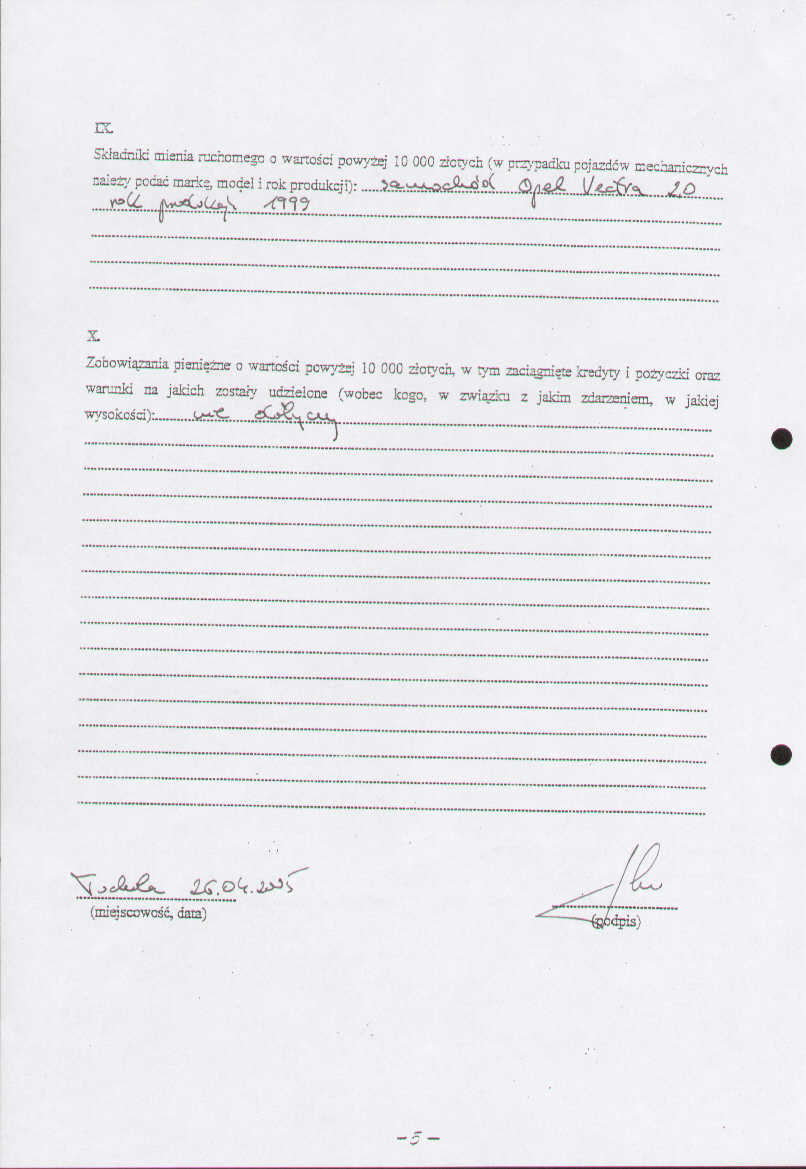 IX.
Składniki mienia ruchomego o wartości powyżej 10 000 złotych (w przypadku pojazdów mechanicznych
należy podać markę, model i rok produkcji): samochód Opel Vectra 2.0
rok produkcji 1999
X.
Zobowiązania pieniężne o wartości powyżej 10 000 złotych, w tym zaciągnięte kredyty i pożyczki oraz
warunki na jakich zostały udzielone (wobec kogo, w związku z jakim zdarzeniem, w jakiej
wysokości): nie dotyczy
Tuchola 26.04.2005
(miejscowość, data)
(podpis)
- 5 -